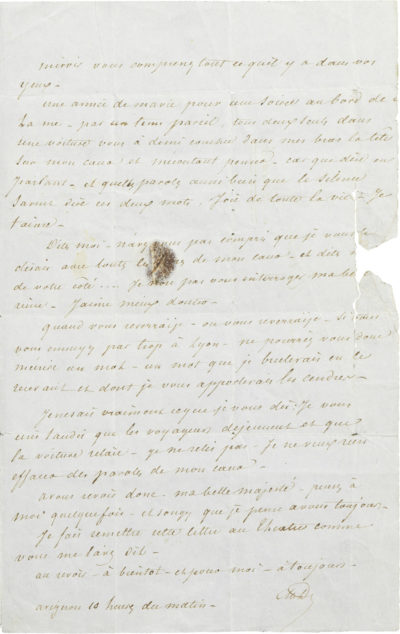 miroir vous comprenez tout ce qu'il y a dans vos
yeux -
une année de ma vie pour une soirée au bord de
la mer - par un tems pareil, tous deux seuls dans
une voiture vous à demi couchée dans mes bras la tête
sur mon cœur et m'écoutant penser - car que dire en
parlant - et quelle parole aussi bien que le silence
saurait dire ces deux mots. Joie de toute la vie - Je
t'aime -
Dites moi - n'avez vous pas compris que je vous le
disais avec toutes les de mon cœur - et dites
de votre côté .... Je non pas vous interroger ma
reine - J'aime mieux douter -
quand vous reverrai je - ou vous reverrai je - Si vous
vous ennuyez par trop à Lyon - ne pourriez vous donc
m'écrire un mot - un mot que je brulerais en le
recevant et dont je vous apporterais les cendres -
Je ne sais vraiment ce que je vous dis - Je vous
écris tandis que les voyageurs déjeunent et que
la voiture relaie - je ne relis pas - Je ne veux rien
effacer des paroles de mon cœur -
à vous revoir donc ma belle majesté - pensez à
moi quelquefois - et songez que je pense à vous toujours -
Je fais remettre cette lettre au théâtre comme
vous me l'avez dit -
au revoir - à bientôt - et pour moi - à toujours -
avignon 10 heures du matin -